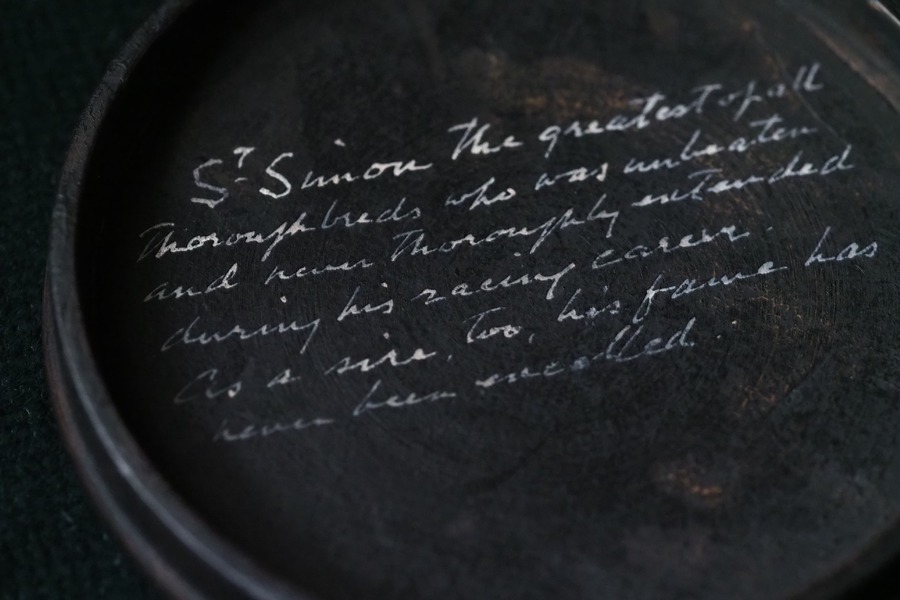 St Simon the greatest of all
Thoroughbreds who was unbeaten
and never thoroughly extended
during his racing career.
As a sire, too, his fame has
never been excelled.